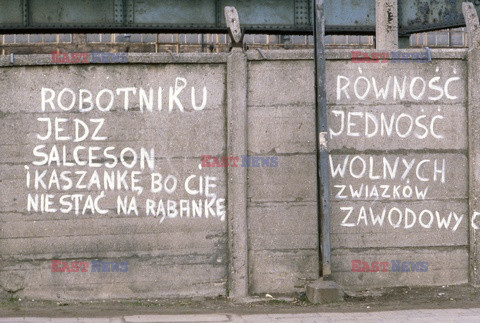 ROBOTNIKU
JEDZ
SALCESON
I KASZANKĘ, BO CIĘ
NIE STAĆ NA RĄBANKĘ
RÓWNOŚĆ
JEDNOŚĆ
WOLNYCH
ZWIĄZKÓW
ZAWODOWYC
EAST NEWS
EAST NEWS
EAST NEWS
EAST NEWS
EAST NEWS